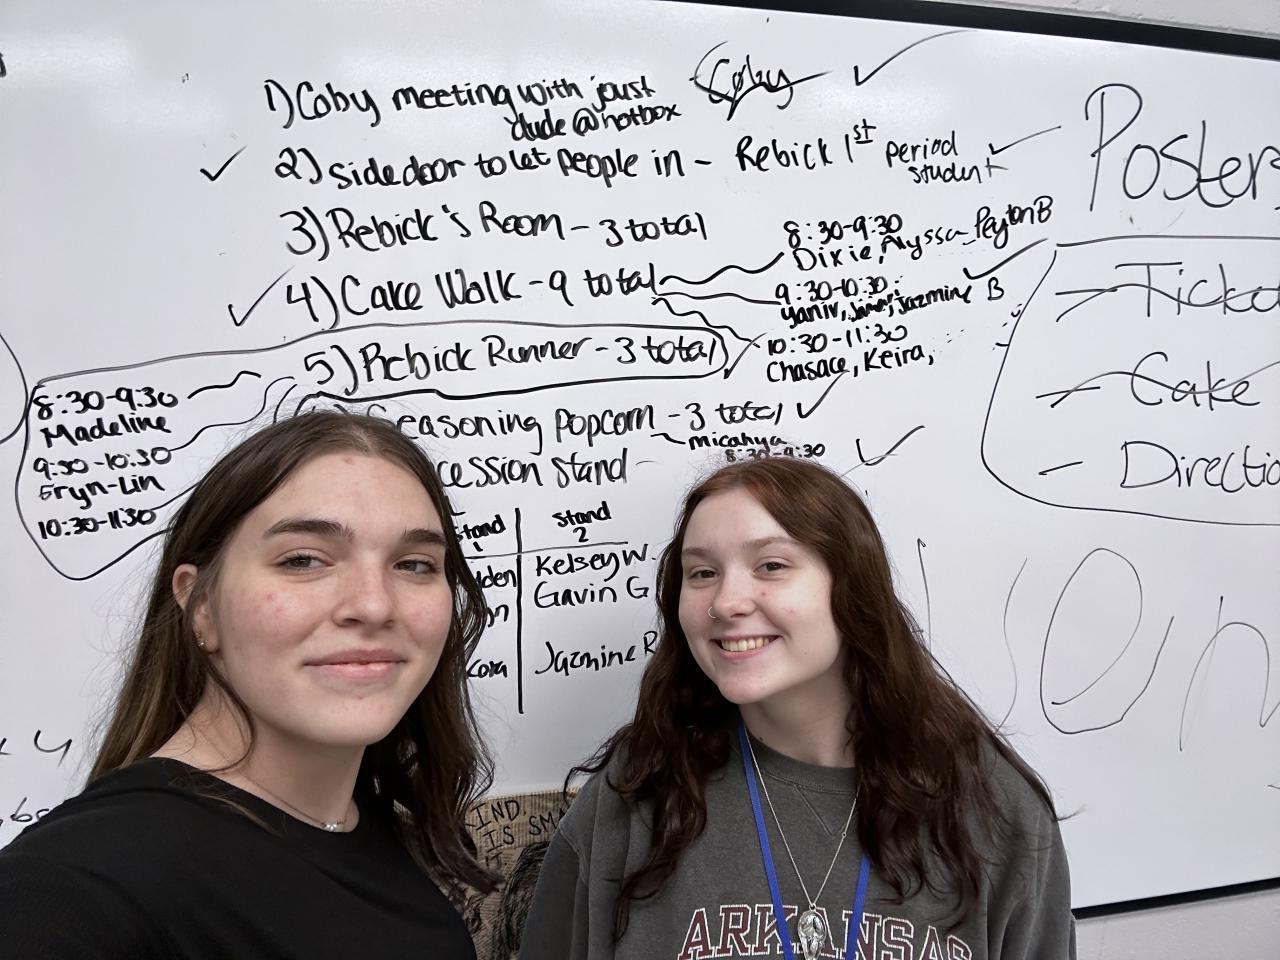 1) Coby meeting with joust Coby
dude @ hotbox
2) side door to let people in - Rebick 1st period
student
3) Rebick's Room - 3 total
8:30-9:30
Dixie, Alyssa, Peyton B
4) Cake Walk - 9 total
9:30-10:30
Yaniv, Jazmine B
10:30-11:30
Chasace, Keira,
5) Rebick Runner - 3 total
8:30-9:30
Madeline
9:30-10:30
Eryn-Lin
10:30-11:30
Seasoning popcorn - 3 total
micahya
8:30-9:30
cession stand -
stand 1
stand 2
Kelsey W.
Gavin G
Jazmine R
Poster
- Ticke
- Cake
- Directio
IND.
IS SMA
ARKANSAS